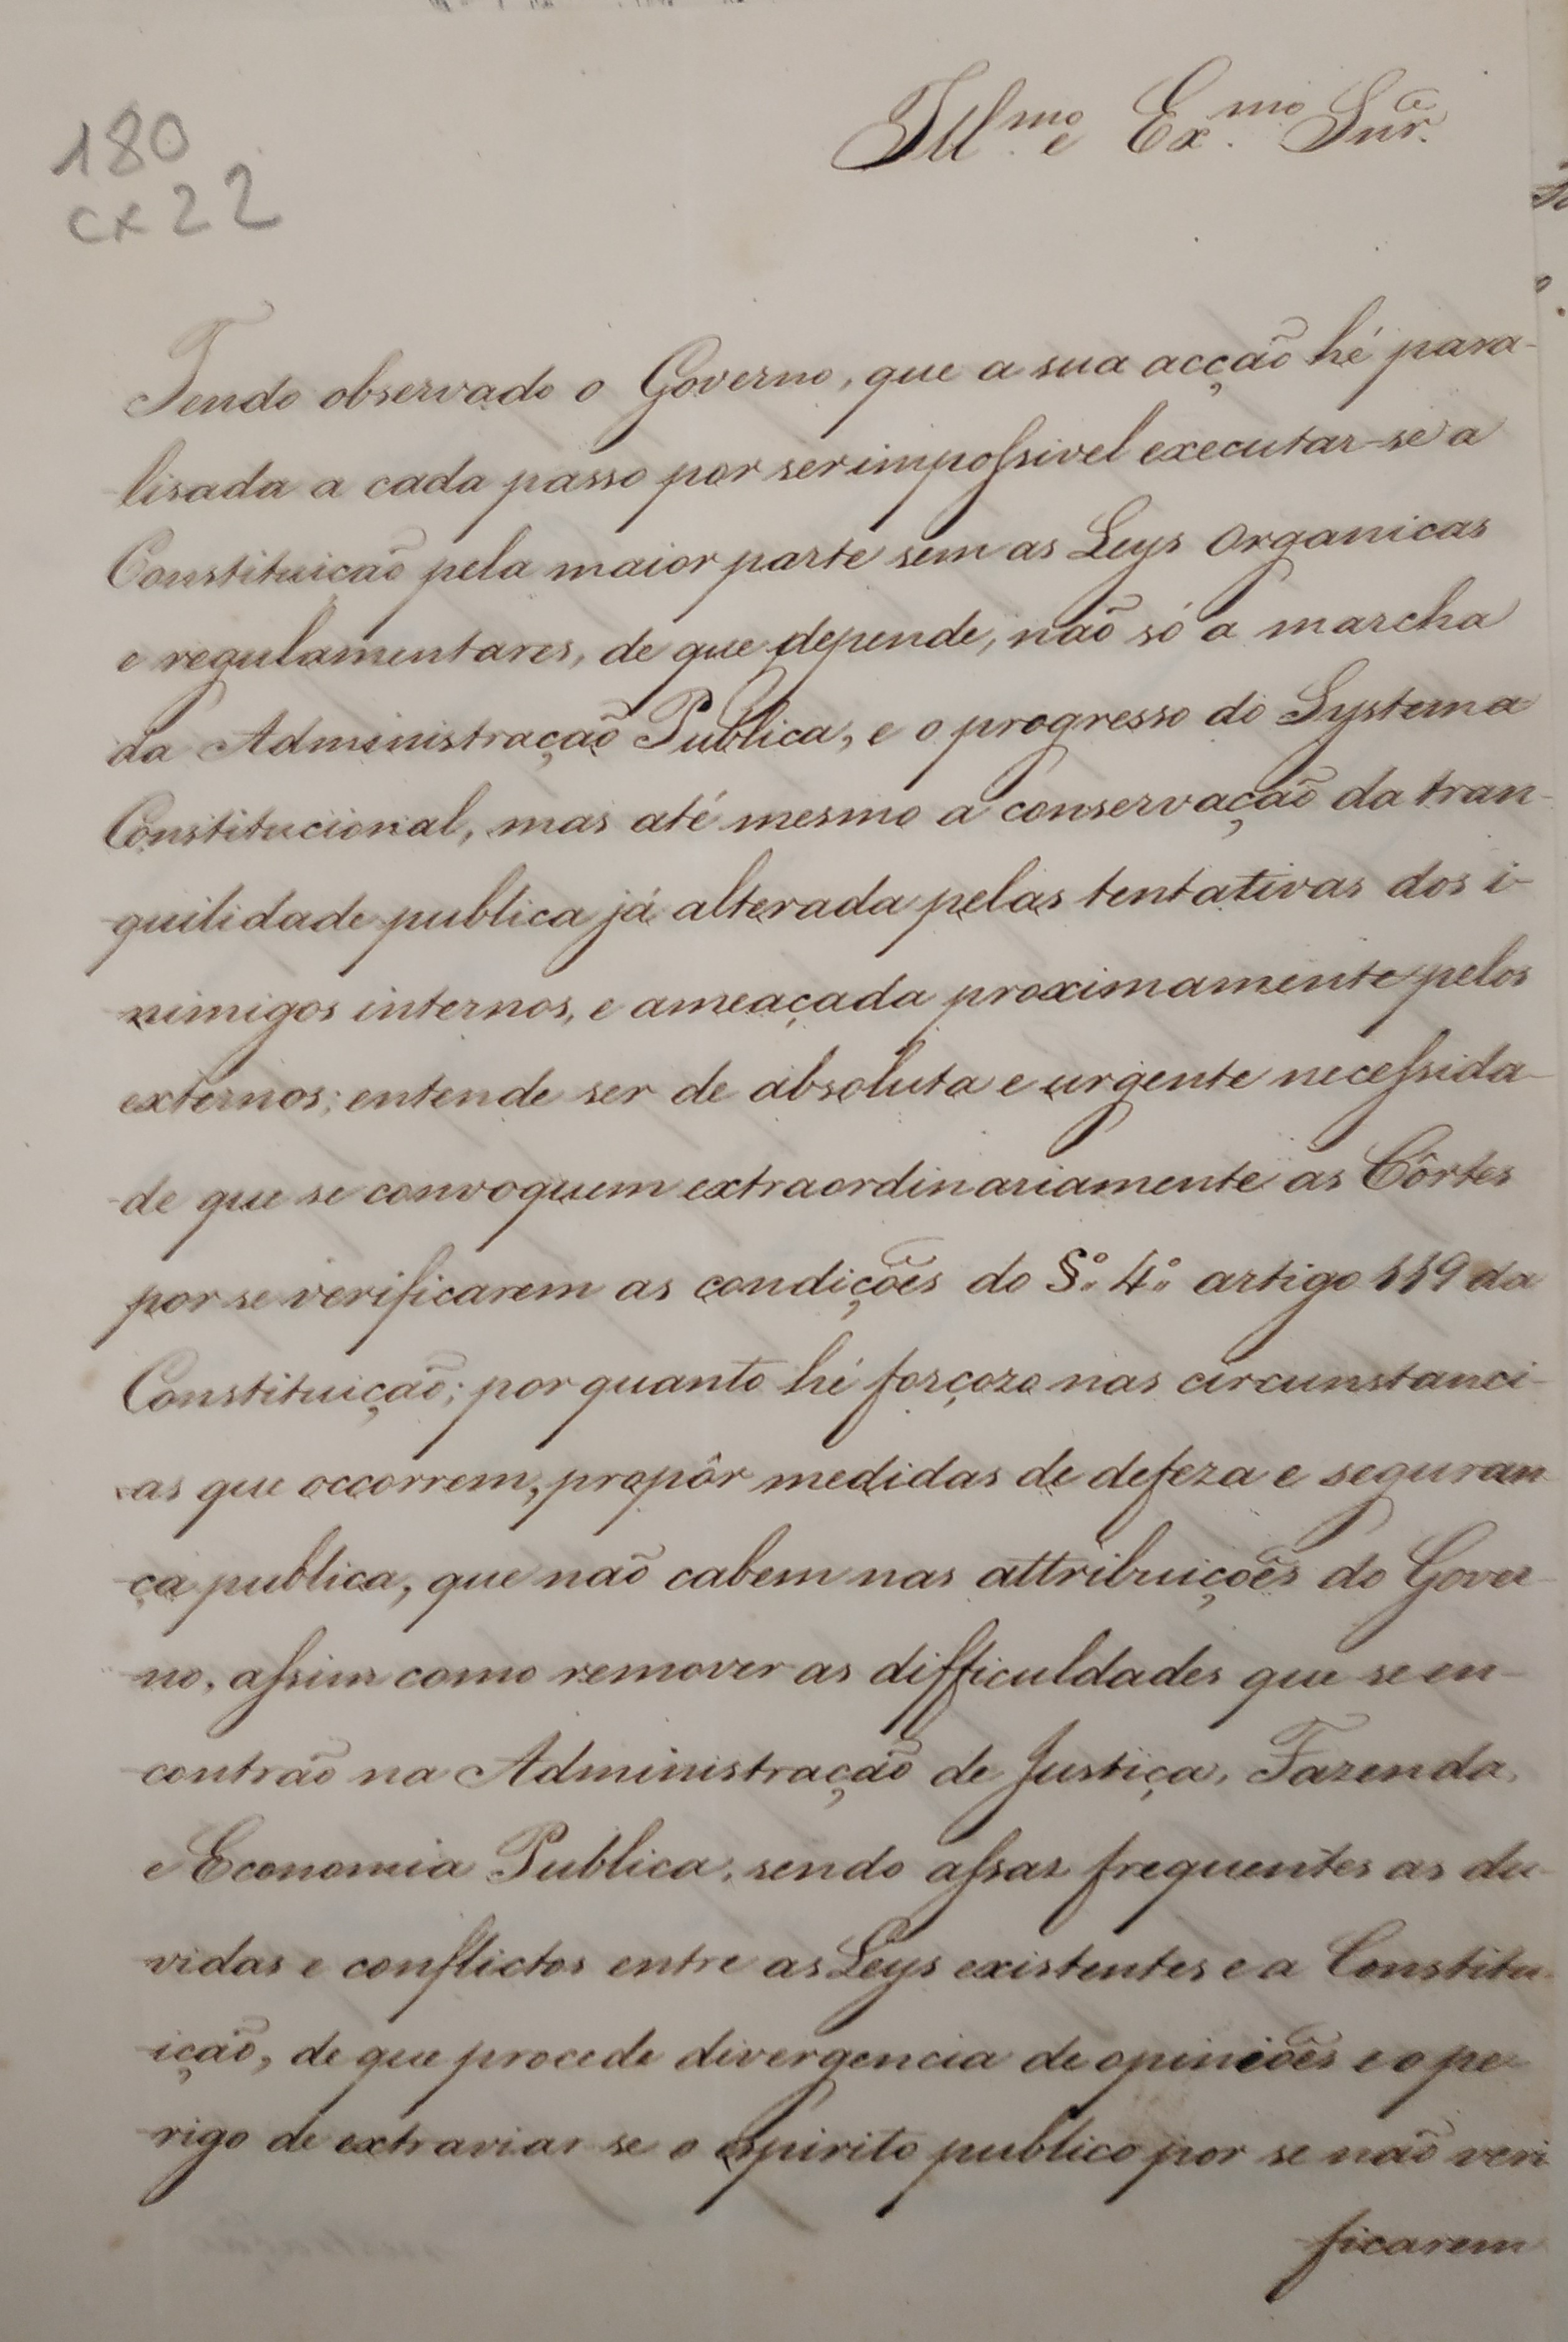 180
cx 22
Ill.mo e Ex.mo Snr.
Tendo observado o Governo, que a sua acção hé para-
lisada a cada passo por ser impossivel executar-se a
Constituicão pela maior parte sem as Leys Organicas
e regulamentares, de que depende, não só a marcha
da Administração Publica, e o progresso do Systema
Constitucional, mas até mesmo a conservação da tran-
quilidade publica já alterada pelas tentativas dos i-
nimigos internos, e ameaçada proximamente pelos
externos; entende ser de absoluta e urgente necessida-
de que se convoquem extraordinariamente as Côrtes
por se verificarem as condições do §.º 4.º artigo 119 da
Constituição; por quanto hé forçozo nas circunstanci-
as que occorrem, propôr medidas de defeza e seguran
ça publica, que não cabem nas attribuições do Gover-
no, assim como remover as difficuldades que se en-
contrão na Administração de Justiça, Fazenda,
e Economia Publica, sendo assas frequentes as du-
vidas e conflictos entre as Leys existentes e a Constitu-
ição, de que procede divergencia de opiniões e o pe-
rigo de extraviar se o espirito publico por se não veri
ficarem